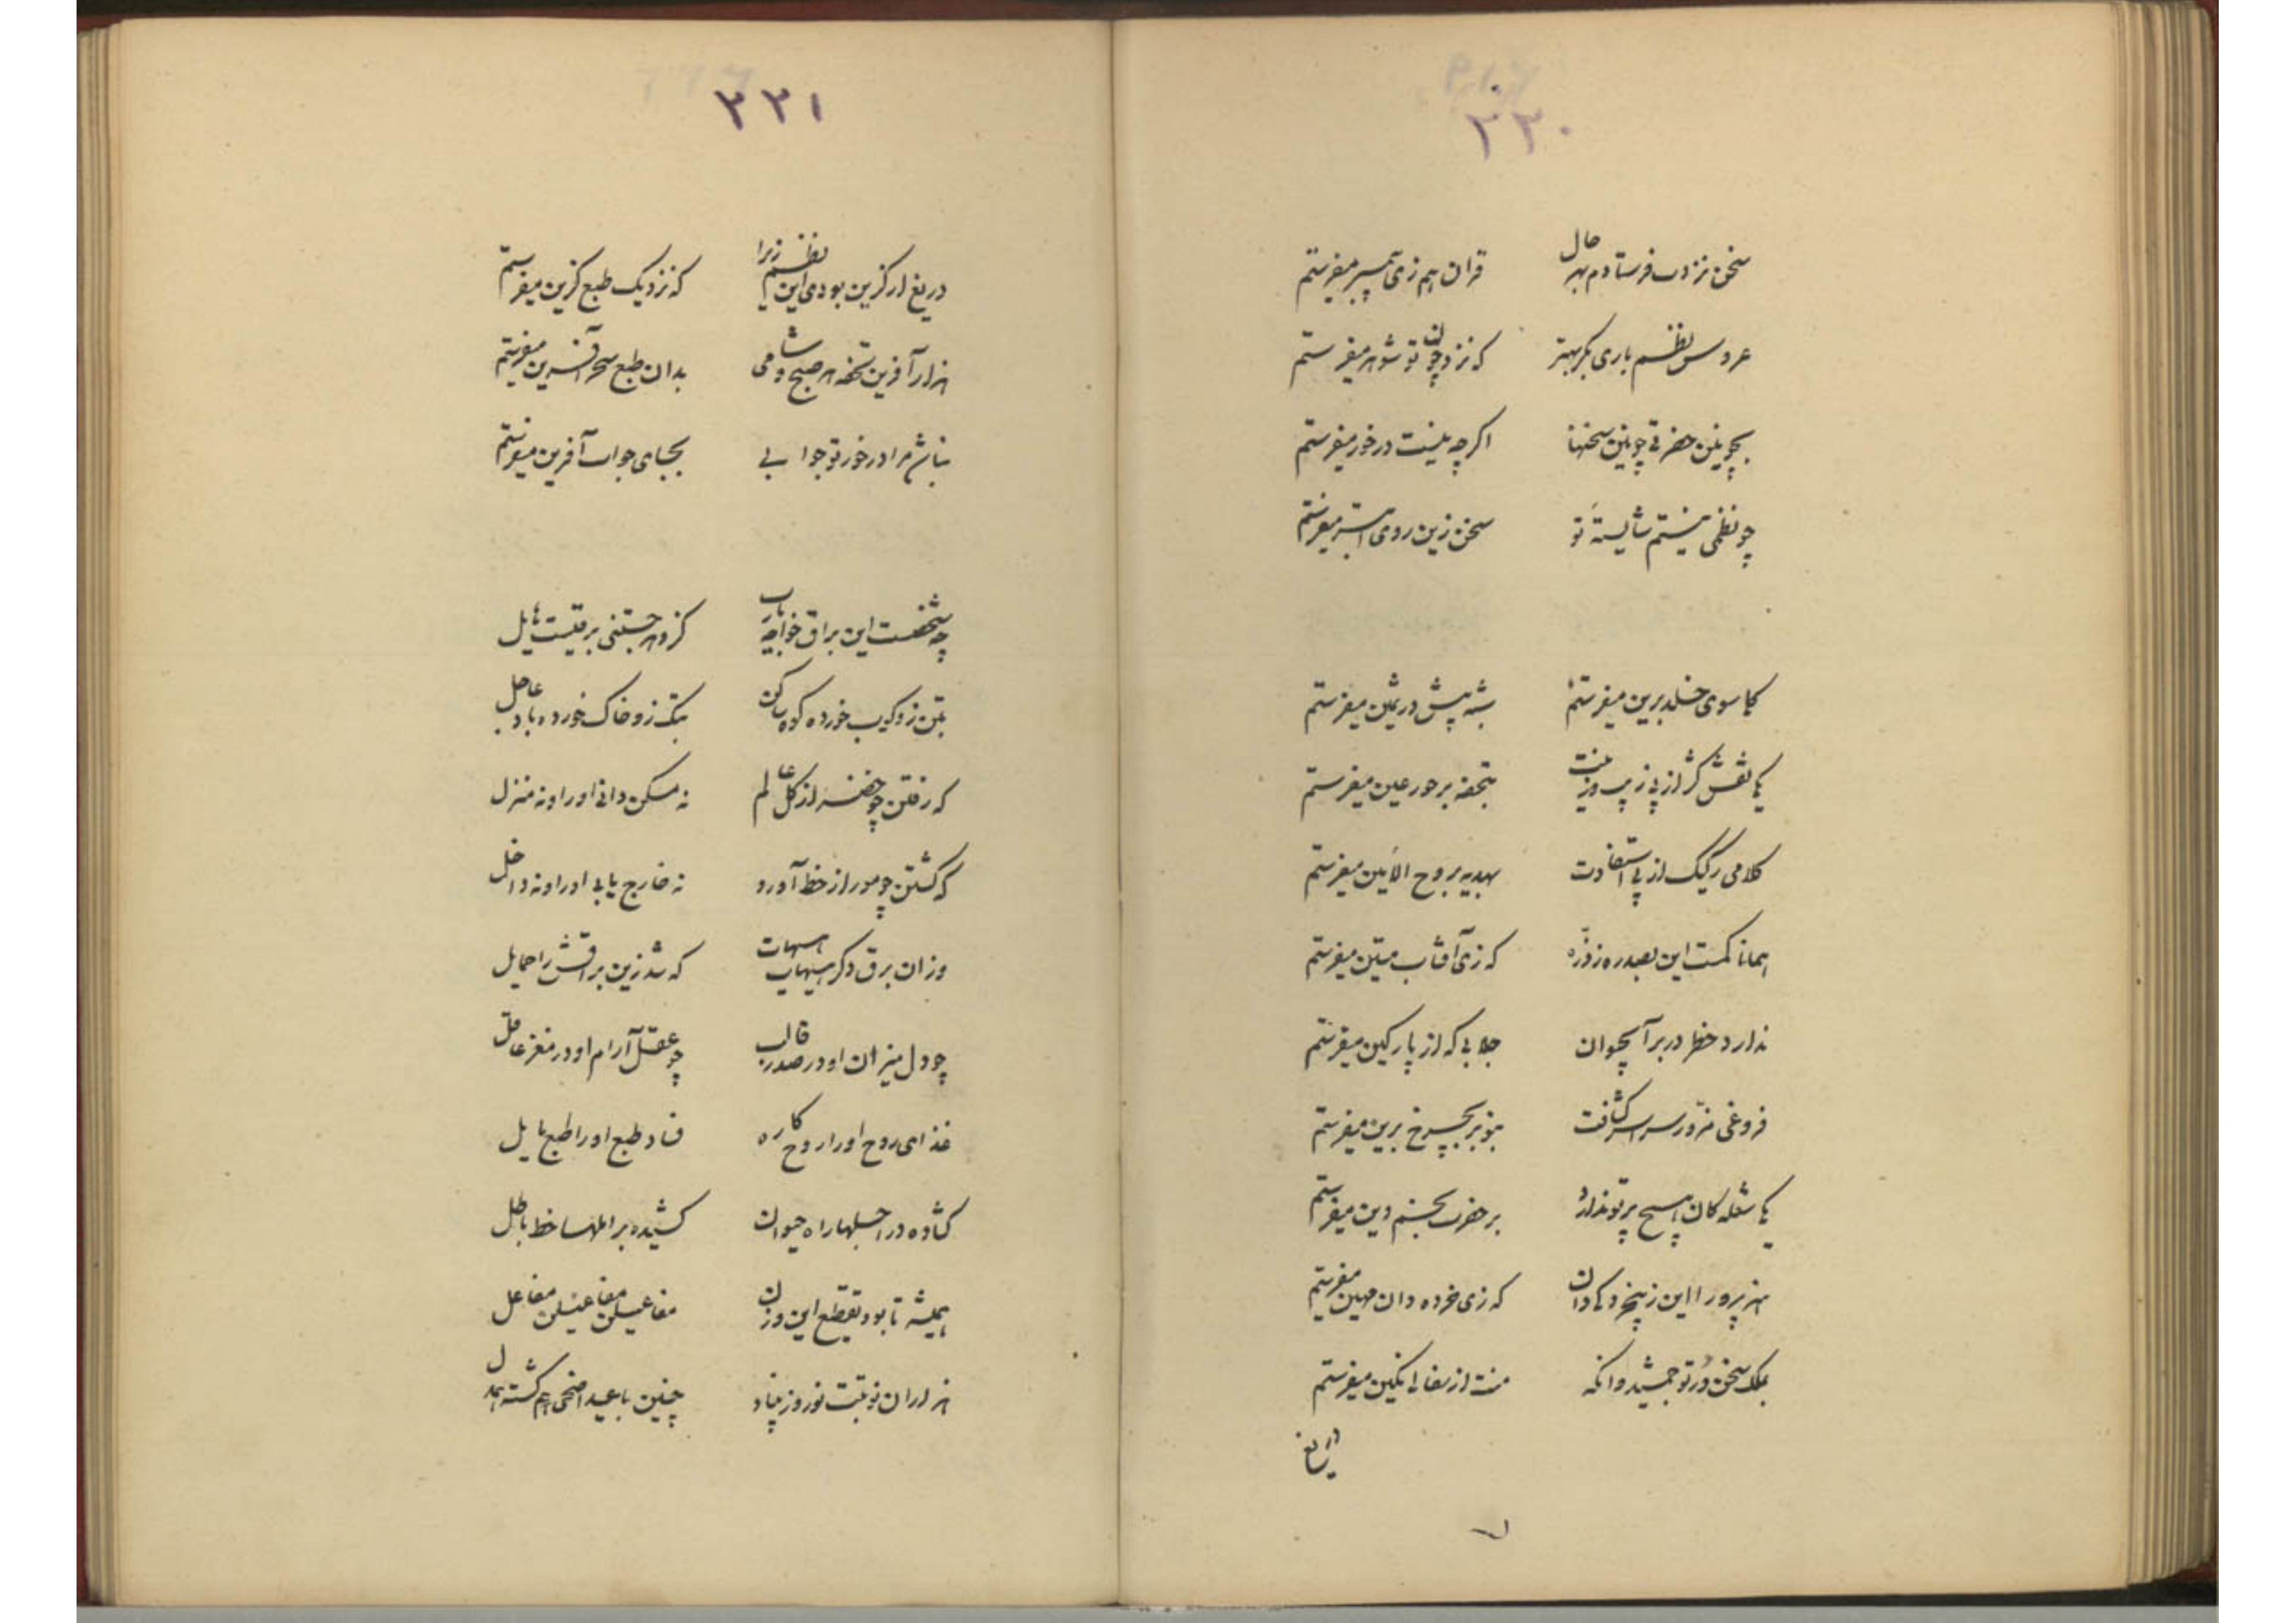 ۲۲۰
سخن نزدت فرستادم بهر حال قران هم زی پیمبر میفرستم
عروس نظم باری بکر بهتر که نزد چون تو شوهر میفرستم
بچونین حضرتی چونین سخنها اگر چه نیست درخور میفرستم
چو نظمی نیستم شایستهٔ تو سخن زین روی میفرستم
کیا سوی خلد برین میفرستم بشه پیش در ثمین میفرستم
یکی نقش کژ از پی زیب و زینت بتحفه بر حور عین میفرستم
کلامی رکیک از پی استفادت بهدیه بروح الامین میفرستم
همانا کمست این بصد ره ز ذره که زی آفتاب مبین میفرستم
ندارد خطر در بر آبحیوان جلابی که از پارگین میفرستم
فروغی مزور سراسر کثافت بنور بچرخ برین میفرستم
یکی شعله کان هیچ پرتو ندارد بر حضرت نجم دین میفرستم
هنرپرورا این ز بیخردگی دان که زی خرده دان مهین میفرستم
بملک سخن در تو جمشید وانگه منت از سفالی نگین میفرستم
دریغ
۲۲۱
دریغ ار گزین بودی این نظم زیرا که نزدیک طبع گزین میفرستم
هزار آفرین تحفه هر صبح و شامی بدان طبع سحر آفرین میفرستم
نباشد مرا درخور تو جوابی بجای جواب آفرین میفرستم
چه شخصست این براق خواجه یارب کزو هر جستنی برقیست هایل
بتن زو کیب خورده کوه ساکن بتک زو خاک خورده باد عاجل
که رفتن چو خضر از کل عالم نه مسکن دانی او را و نه منزل
که گشتن چو مور از خط آورد نه خارج یابی او را و نه داخل
وزان برق دگر هیهات هیهات که شد زین براقش را حمایل
چو دل میزان او در صدر قالب چو عقل آرام او در مغز عاقل
غذای روح او ارواح کاره فساد طبع او را طبع مایل
گشاده در اجلها راه حیوان کشیده بر املها خط باطل
همیشه تا بود تقطیع این وزن مفاعیلن مفاعیلن مفاعل
هزاران نوبتت نوروز بیناد چنین با عید اضحی هم گشته همدل